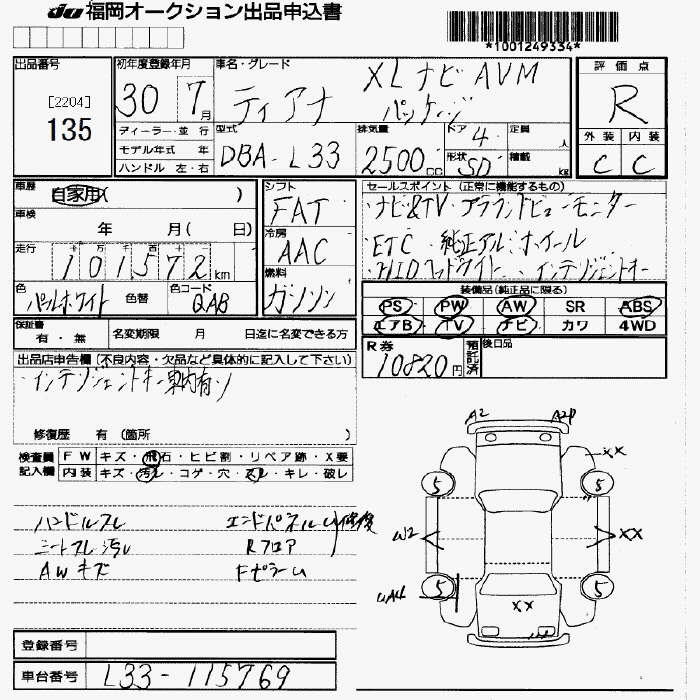 JU 福岡オークション出品申込書
*1001249334*
出品番号
[2204]
135
初年度登録年月
30 7月
車名・グレード
ティアナ
XLナビAVM
パッケージ
評価点
R
外装 内装
C C
ディーラー・並行
モデル年式 年
ハンドル 左・右
型式
DBA-L33
排気量
2500cc
ドア 4
形状 SD
定員 人
積載 kg
車歴
自家用( )
車検
年 月( 日)
走行
十 万 千 百 十 一
101572km
色
パールホワイト
色替
色コード
QAB
シフト
FAT
冷房
AAC
燃料
ガソリン
セールスポイント(正常に機能するもの)
ナビ&TV・アラウンドビューモニター
ETC・純正アルミホイール
HIDヘッドライト インテリジェントキー
装備品(純正品に限る)
PS PW AW SR ABS
エアB TV ナビ カワ 4WD
保証書
有・無
名変期限 月 日迄に名変できる方
R券
10820円
預託済
後日品
出品店申告欄(不良内容・欠品など具体的に記入して下さい)
インテリジェントキー車内有り
修復歴 有 (箇所 )
検査員記入欄
FW キズ・飛石・ヒビ割・リペア跡・X要
内装 キズ・汚レ・コゲ・穴・スレ・キレ・破レ
ハンドルスレ
シートスレ汚レ
AWキズ
エンドパネルU
Rフロア
Fピラー
修復
A2
XX
5
5
W2
XX
5
5
UA4
XX
登録番号
車台番号
L33-115769